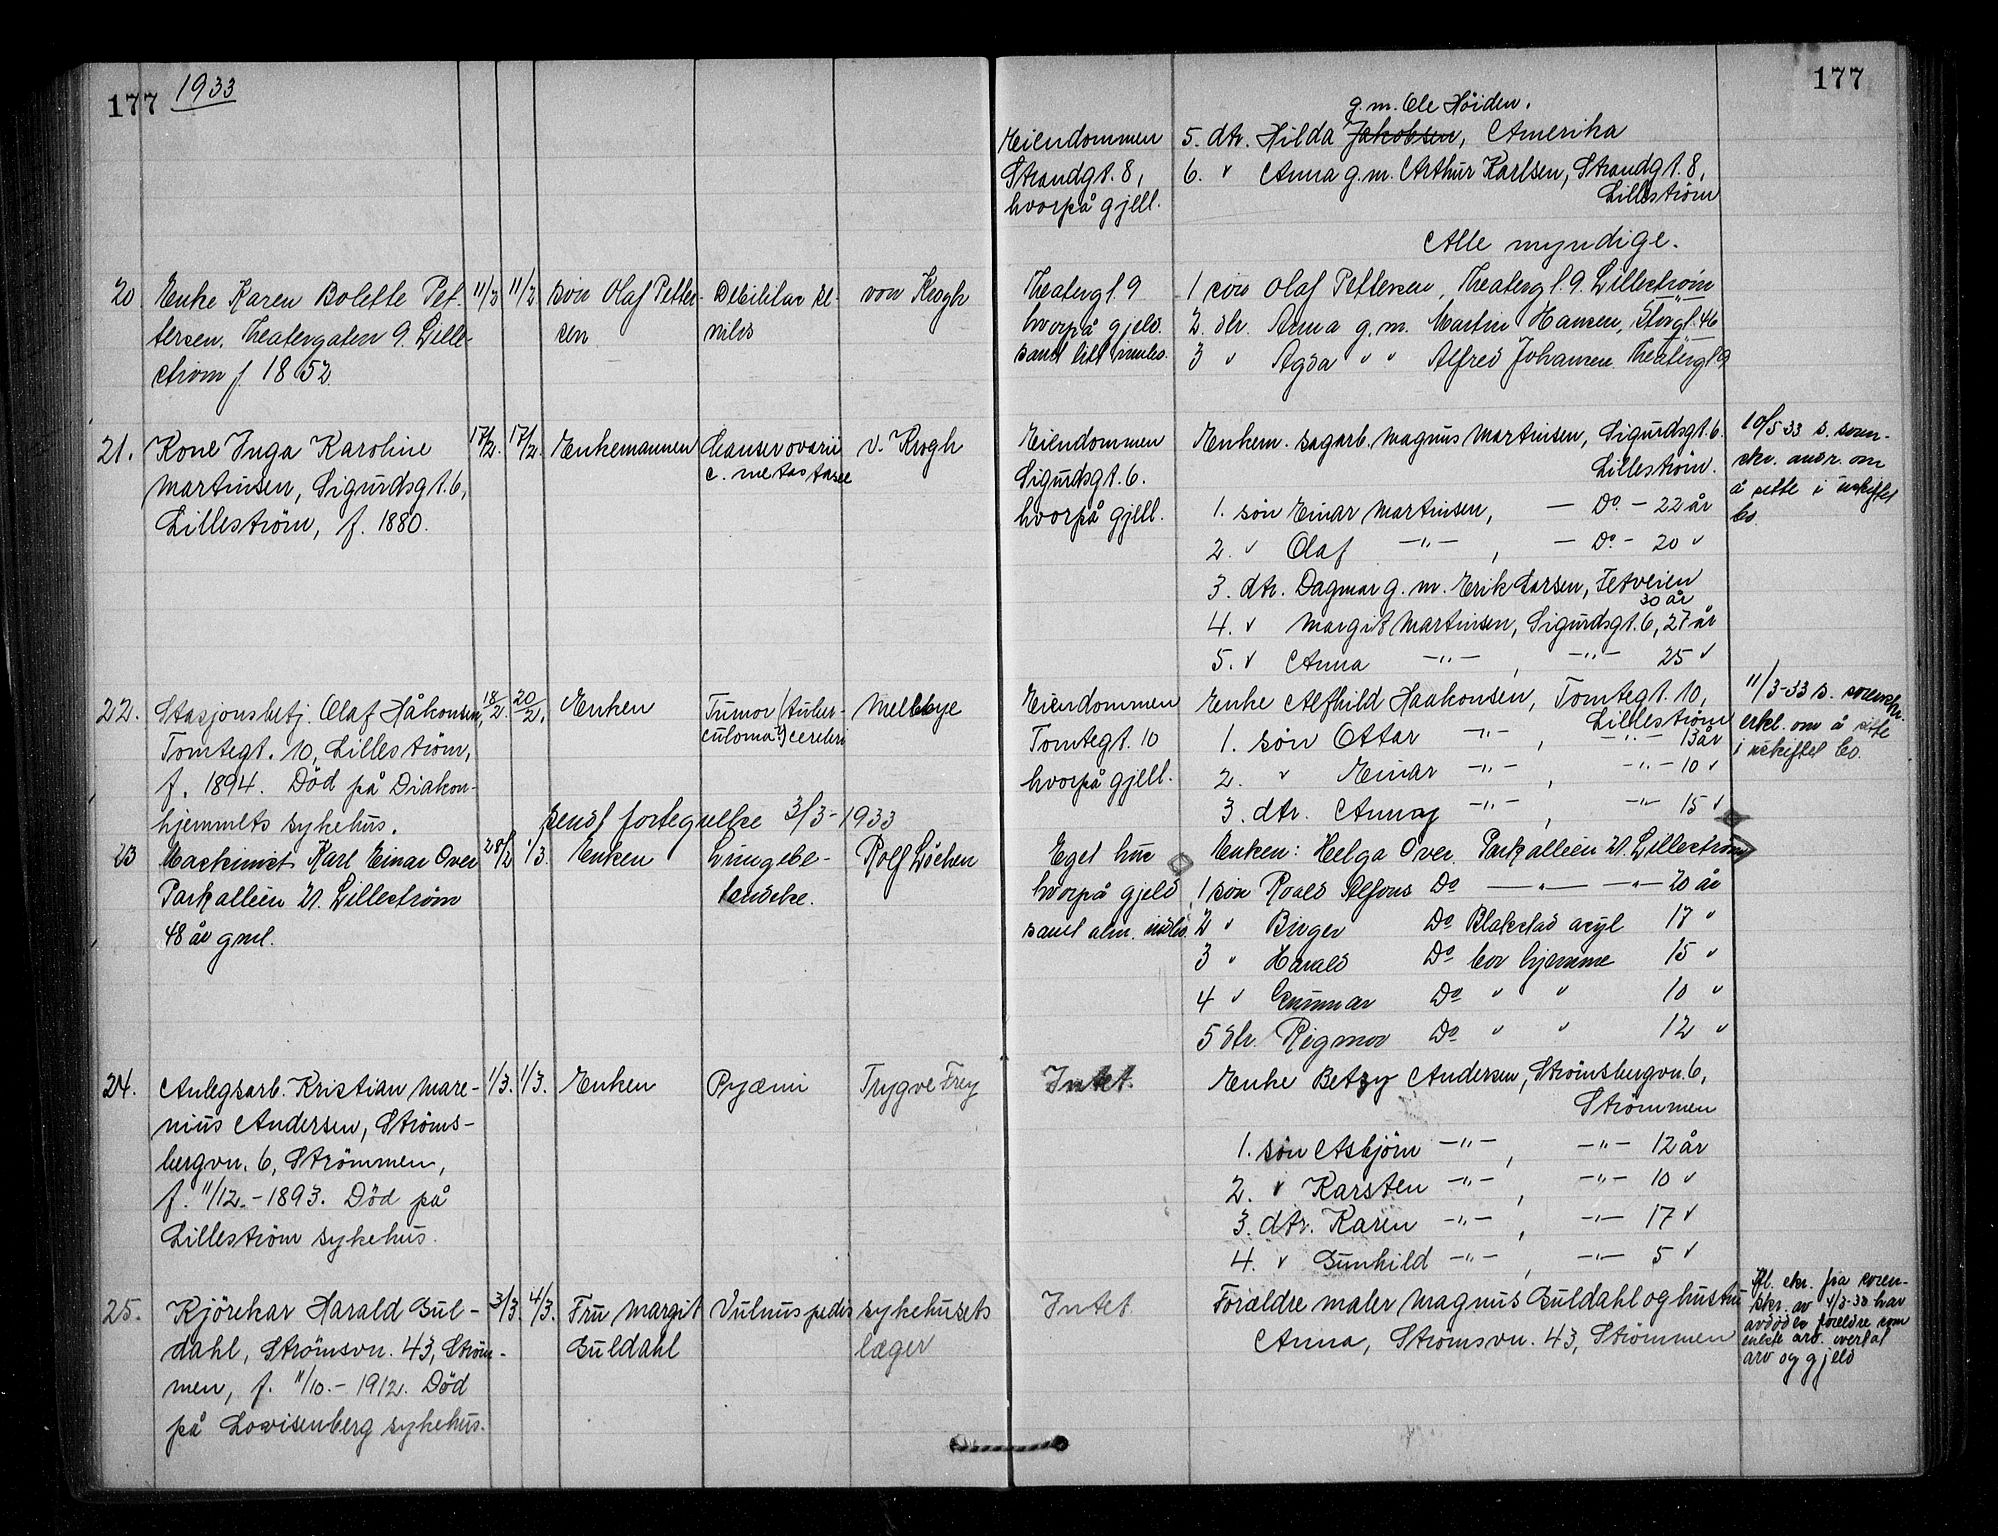 177 1933
177
Eiendommen
Strandgt. 8,
hvorpå gjell.
g. m. Ole Höiden.
5. dtr. Hilda Jakobsen, Amerika
6. " Anna g.m. Arthur Karlsen, Strandgt. 8,
Lilleström
Alle myndige.
20 Enke Karen Bolette Pet-
tersen, Theatergaten 9. Lille-
ström f. 1852
11/2 11/2
sön Olaf Petter-
sen
Debilitas se-
nilis
von Krogh
Theatergt. 9
hvorpå gjeld.
samt litt innbo.
1 sön Olaf Pettersen, Theatergt. 9. Lilleström
2. dtr. Anna g. m. Martin Hansen, Storgt. 46
3 " Agda " " Alfred Johansen. Theatergt 9
21. Kone Inga Karoline
Martinsen, Sigurdsgt. 6,
Lilleström, f. 1880.
17/2. 17/2.
Enkemannen
Cancer ovarii
c. metastase
v. Krogh
Eiendommen
Sigurdsgt. 6.
hvorpå gjell.
Enkem. sagarb. Magnus Martinsen, Sigurdsgt. 6.
Lilleström.
1. sön Einar Martinsen, — Do. — 22 år
2. " Olaf —"— , — Do. — 20 "
3. dtr. Dagmar g. m. Erik Larsen, Fetveien
30 år
4. " Margit Martinsen, Sigurdsgt. 6, 27 år
5. " Anna —"— , —"— 25 "
10/5 33 s. soren-
skr. andr. om
å sitte i uskiftet
bo.
22. Stasjonsbetj. Olaf Håkonsen,
Tomtegt. 10, Lilleström,
f. 1894. Död på Diakon-
hjemmets sykehus.
18/2. 20/2.
Enken
Tumor (tuber-
culoma?) cerebri
Mellbye
Eiendommen
Tomtegt. 10
hvorpå gjell.
Enke Alfhild Haakonsen, Tomtegt. 10,
Lilleström
1. sön Ottar —"— , —"— 13 år
2. " Einar —"— , —"— 10 "
3. dtr. Annaj —"— , —"— 15 "
11/3-33 s. sorenskr.
erkl. om å sitte
i uskiftet bo.
sendt fortegnelse 3/3-1933
23 Maskinist Karl Einar Over
Parkalleen 21. Lilleström
48 år gml.
28/2 1/3.
Enken
Lungebe-
tendelse.
Rolf Löchen
Eget hus
hvorpå gjeld
samt alm. indbo
Enken: Helga Over. Parkalleen 21. Lilleström
1 sön Roald Alfons Do — " — —"— 20 år
2 " Birger Do Blakstad asyl 17 "
3 " Harald Do bor hjemme 15 "
4 " Gunnar Do " " 10 "
5 dtr. Rigmor Do " " 12 "
24. Anlegsarb. Kristian Mare-
nius Andersen, Ströms-
bergvn. 6, Strömmen,
f. 11/12.-1893. Död på
Lilleström sykehus.
1/3. 1/3.
Enken
Pyæmi
Trygve Frey
Intet.
Enke Betzy Andersen, Strömsbergvn. 6,
Strömmen
1. sön Asbjörn —"— , —"— 12 år
2. " Karsten —"— , —"— 10 "
3. dtr. Karen —"— , —"— 17 "
4. " Gunhild —"— , —"— 5 "
25. Kjörekar Harald Gul-
dahl, Strömsvn. 43, Ström-
men, f. 11/10.-1912. Död
på Lovisenberg sykehus.
3/3. 4/3.
Fru Margit
Guldahl
Vulnus pedis
sykehusets
læger
Intet
Forældre maler Magnus Guldahl og hustru
Anna, Strömsvn. 43, Strömmen
skr. fra soren-
skr. av 4/3-33 har
avdödes foreldre som
eneste arv. overtat
arv og gjeld